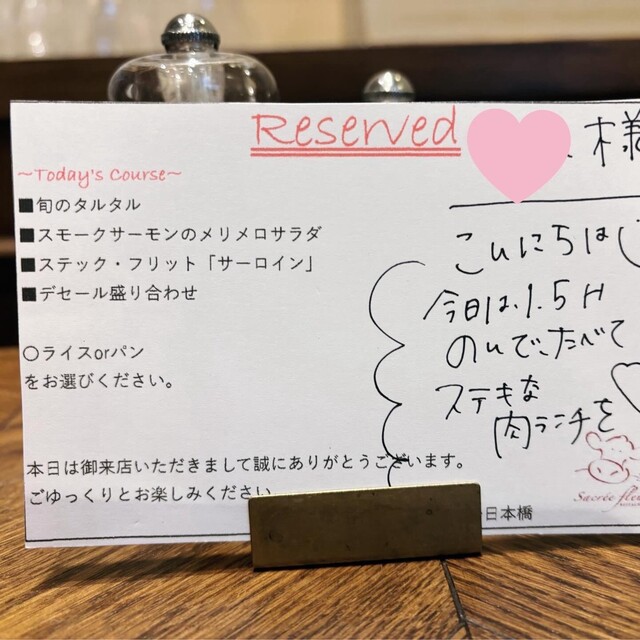 Reserved
様
~Today's Course~
■旬のタルタル
■スモークサーモンのメリメロサラダ
■ステック・フリット「サーロイン」
■デセール盛り合わせ
〇ライスorパン
をお選びください。
本日は御来店いただきまして誠にありがとうございます。
ごゆっくりとお楽しみください
こんにちは
今日は、1.5H
のんで、たべて
ステキな
肉ランチを
Sacrée fleur
日本橋